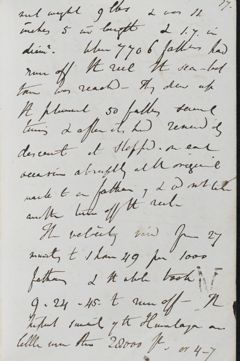 17.
net weight 9 lbs & was 11
inches 5 in length & 1.7. in
diamr. When 7706 fathoms had
run off the reel the sea-bottom
was reached - They drew up
the plummet 50 fathoms several
times & after it had renewed
descent it stopped on each
occasion abruptly at the original
mark to a fathom & did not take
another turn off the reel
The velocity from 27
minutes to 1 hour 49 per 1000
fathoms & the whole took
9 - 24 - 45 to run off - The
highest summits of the Himalaya are
little over than 28000 ft. or 4-7